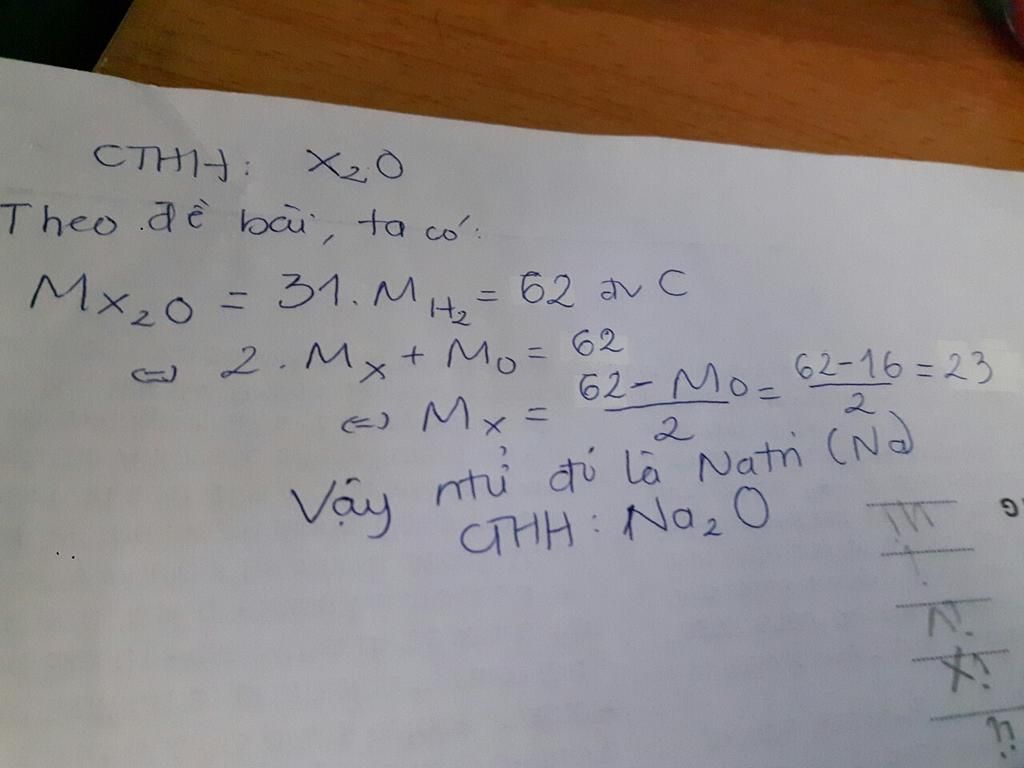 CTHH: X₂O
Theo đề bài, ta có:
M_X₂O = 31. M_H₂ = 62 đvC
⇔ 2. M_X + M_O = 62
⇔ M_X = (62 - M_O)/2 = (62-16)/2 = 23
Vậy ntử đó là Natri (Na)
CTHH: Na₂O